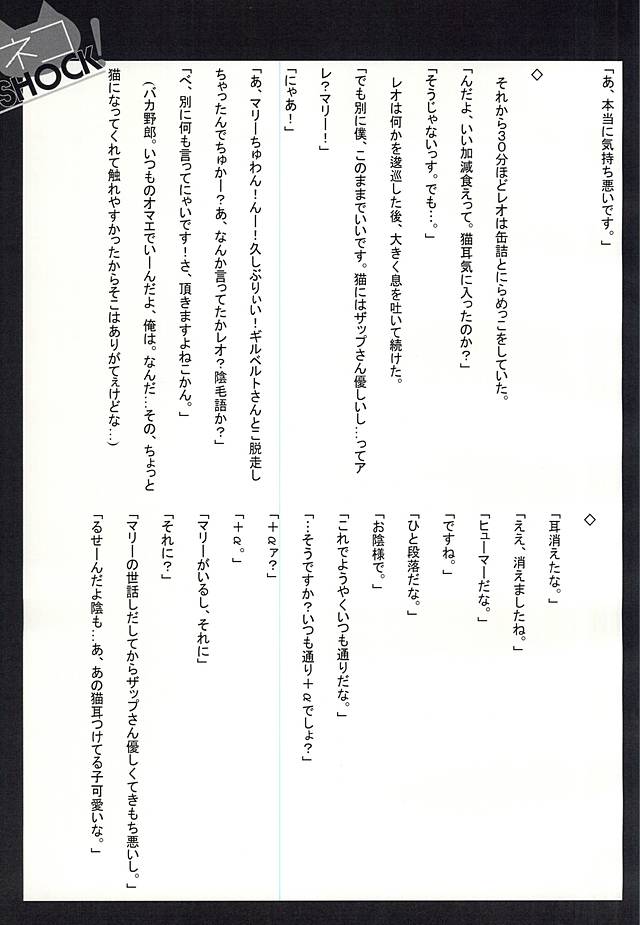 ネコ
SHOCK!
「あ、本当に気持ち悪いです。」
◇
それから３０分ほどレオは缶詰とにらめっこをしていた。
「んだよ、いい加減食えって。猫耳気に入ったのか？」
「そうじゃないっす。でも…。」
レオは何かを逡巡した後、大きく息を吐いて続けた。
「でも別に僕、このままでいいです。猫にはザップさん優しいし…ってア
レ？マリー！」
「にゃあ！」
「あ、マリーちゅわん！んー！久しぶりぃい！ギルベルトさんとこ脱走し
ちゃったんでちゅかー？あ、なんか言ってたかレオ？陰毛語か？」
「べ、別に何も言ってにゃいです！さ、頂きますよねこかん。」
（バカ野郎。いつものオマエでいーんだよ、俺は。なんだ…その、ちょっと
猫になってくれて触れやすかったからそこはありがてぇけどな…）
◇
「耳消えたな。」
「ええ、消えましたね。」
「ヒューマーだな。」
「ですね。」
「ひと段落だな。」
「お陰様で。」
「これでようやくいつも通りだな。」
「…そうですか？いつも通り＋αでしょ？」
「＋αァ？」
「＋α。」
「マリーがいるし、それに」
「それに？」
「マリーの世話しだしてからザップさん優しくてきもち悪いし。」
「るせーんだよ陰も…あ、あの猫耳つけてる子可愛いな。」